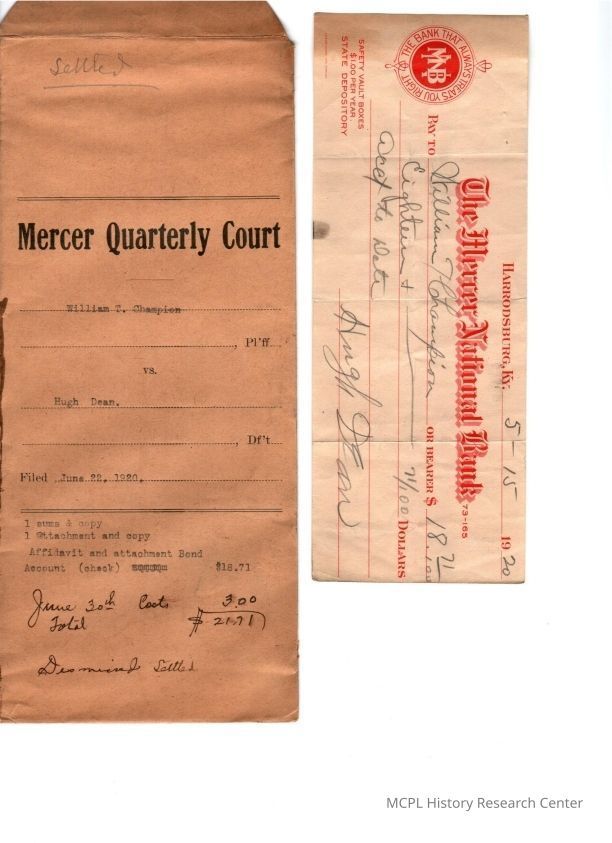 Settled
Mercer Quarterly Court
William T. Champion
, Pl'ff.
vs.
Hugh Dean.
, Df't.
Filed June 22, 1920.
1 sums & copy
1 attachment and copy
Affidavit and attachment Bond
Account (check) $18.71
June 30th Costs 3.00
Total $21.71
Dismissed Settled
THE BANK THAT ALWAYS TREATS YOU RIGHT
MNB
SAFETY VAULT BOXES
$1.00 PER YEAR.
STATE DEPOSITORY
HARRODSBURG, KY. 5-15 1920
The Mercer National Bank 73-165
PAY TO William T Champion OR BEARER $ 18.71
Eighteen + 71/100 DOLLARS
acct to Date
Hugh Dean
MCPL History Research Center